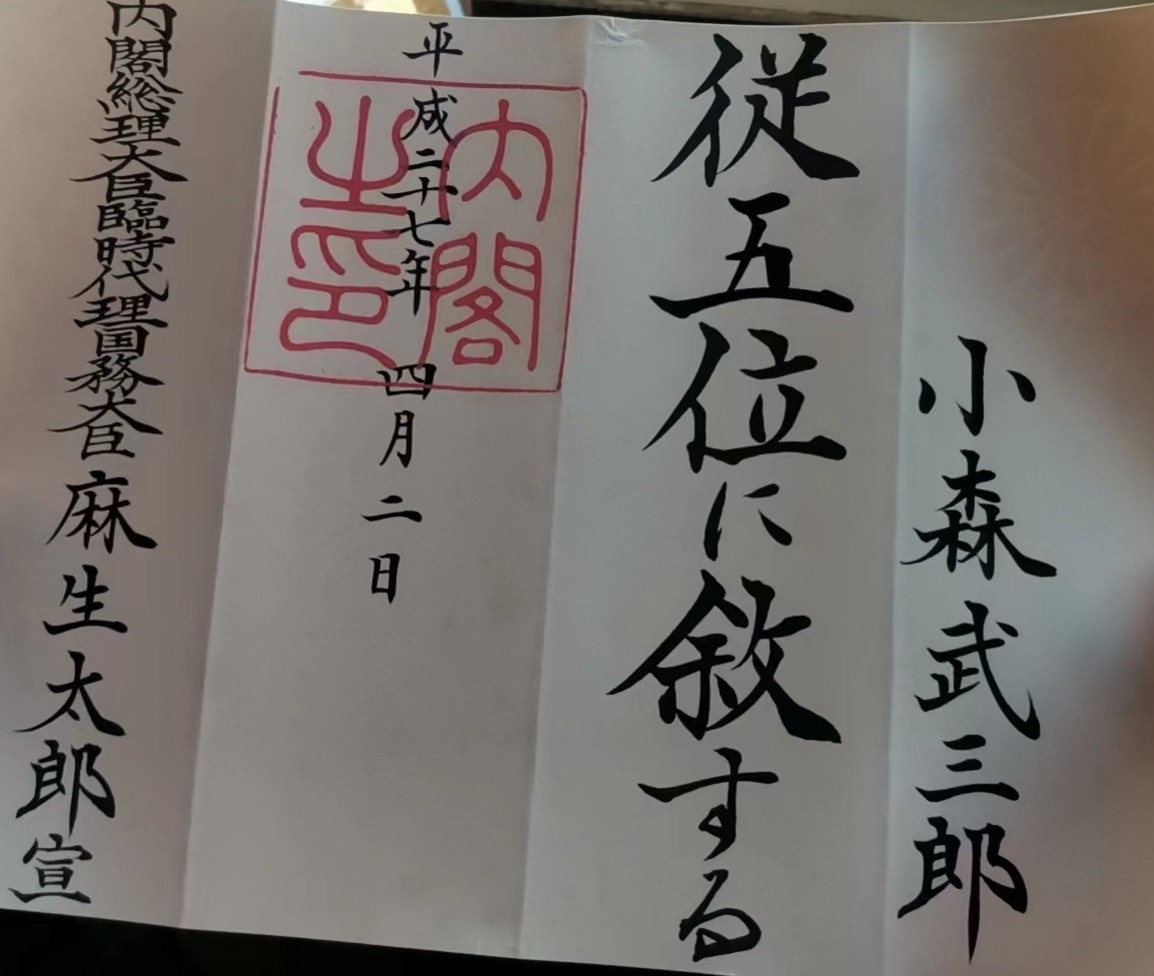 小森武三郎
従五位に敘する
平成二十七年 四月二日
内閣之印
内閣総理大臣臨時代理国務大臣麻生太郎宣